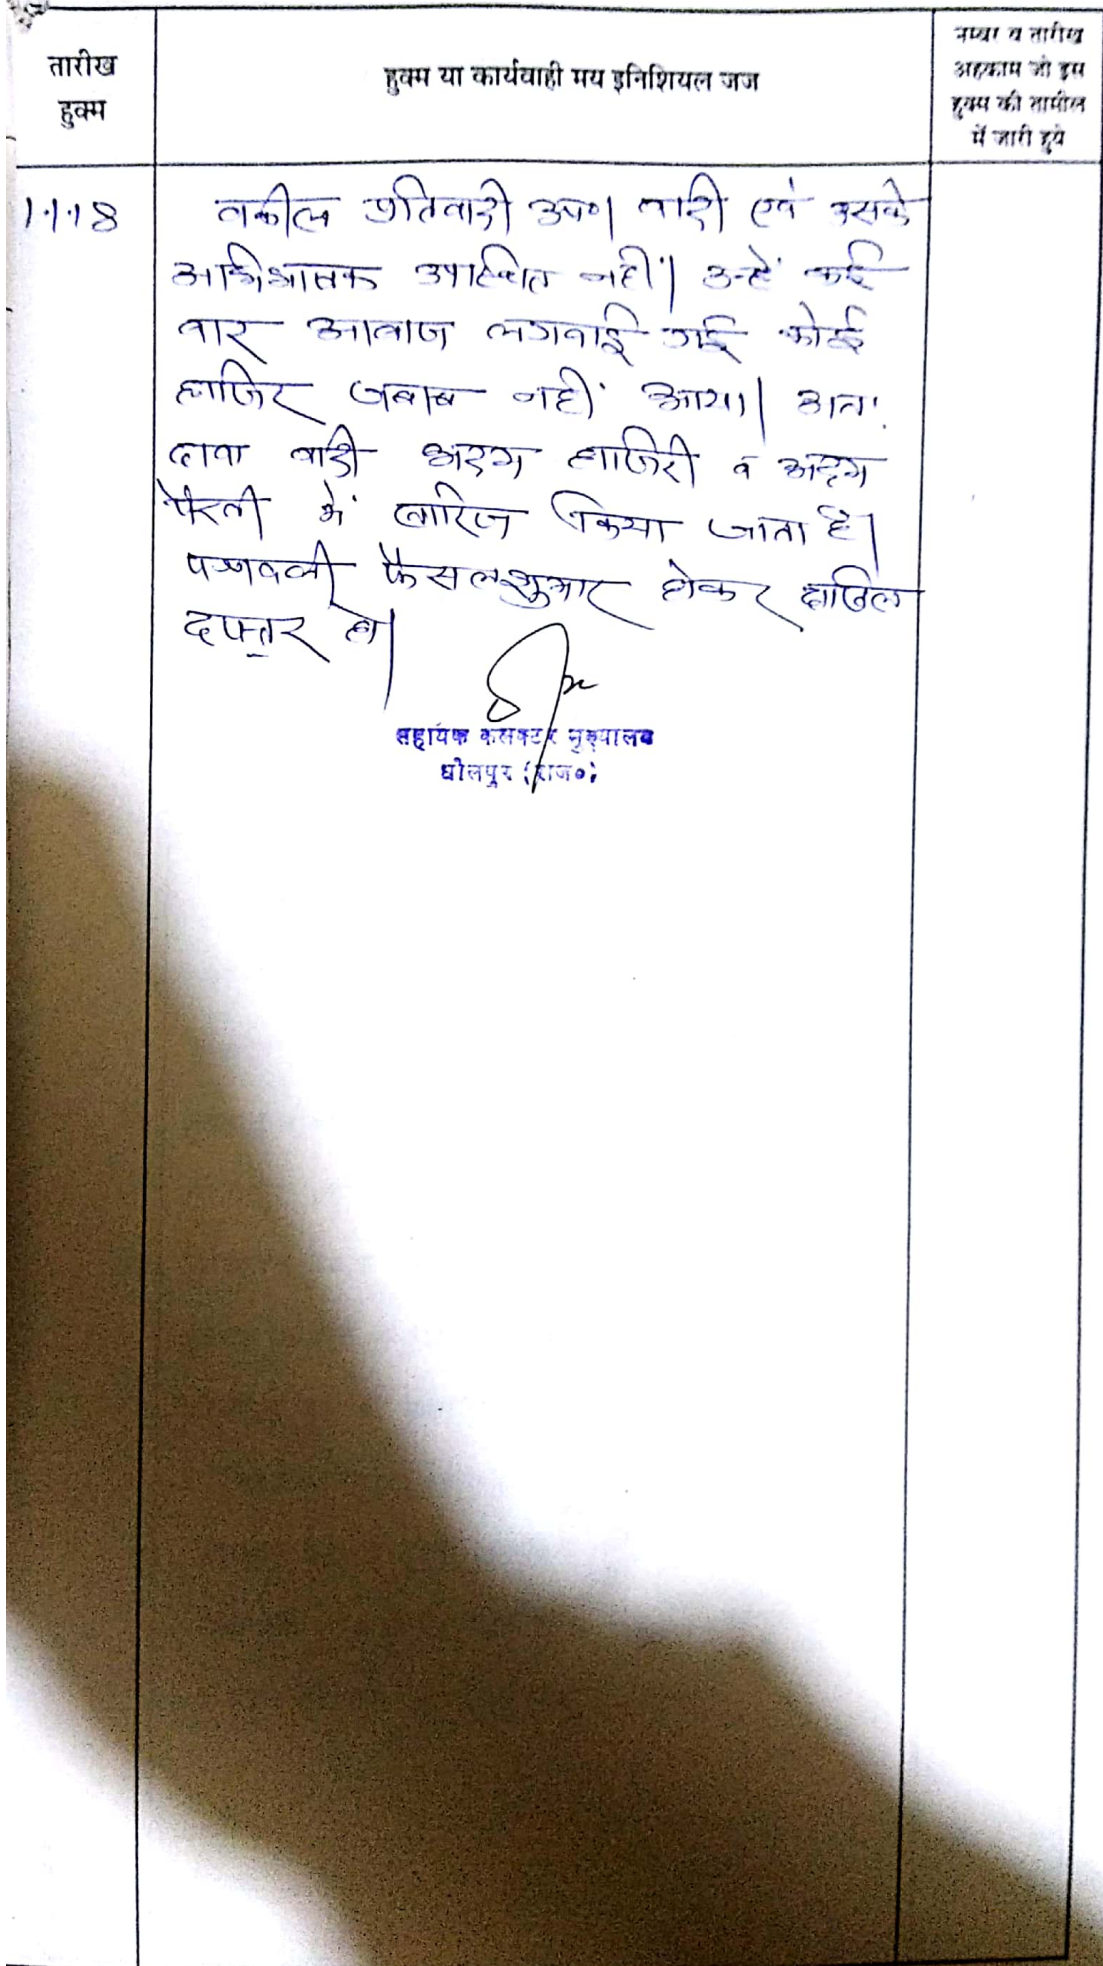 तारीख
हुक्म
हुक्म या कार्यवाही मय इनिशियल जज
नम्बर व तारीख
अहकाम जो इस
हुक्म की तामील
में जारी हुये
1.1.18
वकील प्रतिवादी उप० वादी एवं उसके
अभिभाषक उपस्थित नहीं। उन्हें कई
बार आवाज लगवाई गई कोई
हाजिर जबाब नहीं आया। अतः
दावा वादी अदम हाजिरी व अदम
पैरवी में खारिज किया जाता है।
पत्रावली फैसलशुमार होकर दाखिल
दफ्तर हो।
सहायक कलक्टर मुख्यालय
धौलपुर (राज०)